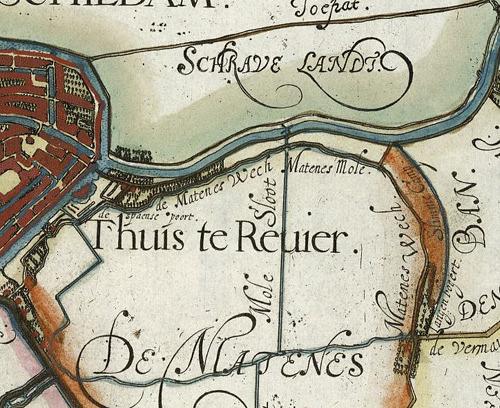 SCHIEDAM.
Toepat.
SCHRAVE LANDT.
de Matenes Wech
Matenes Mole.
de spaense poort.
Sloot
Mole
Thuis te Reuier.
Matenes Wech
BAN.
DE MATENES
DEN
de Verma